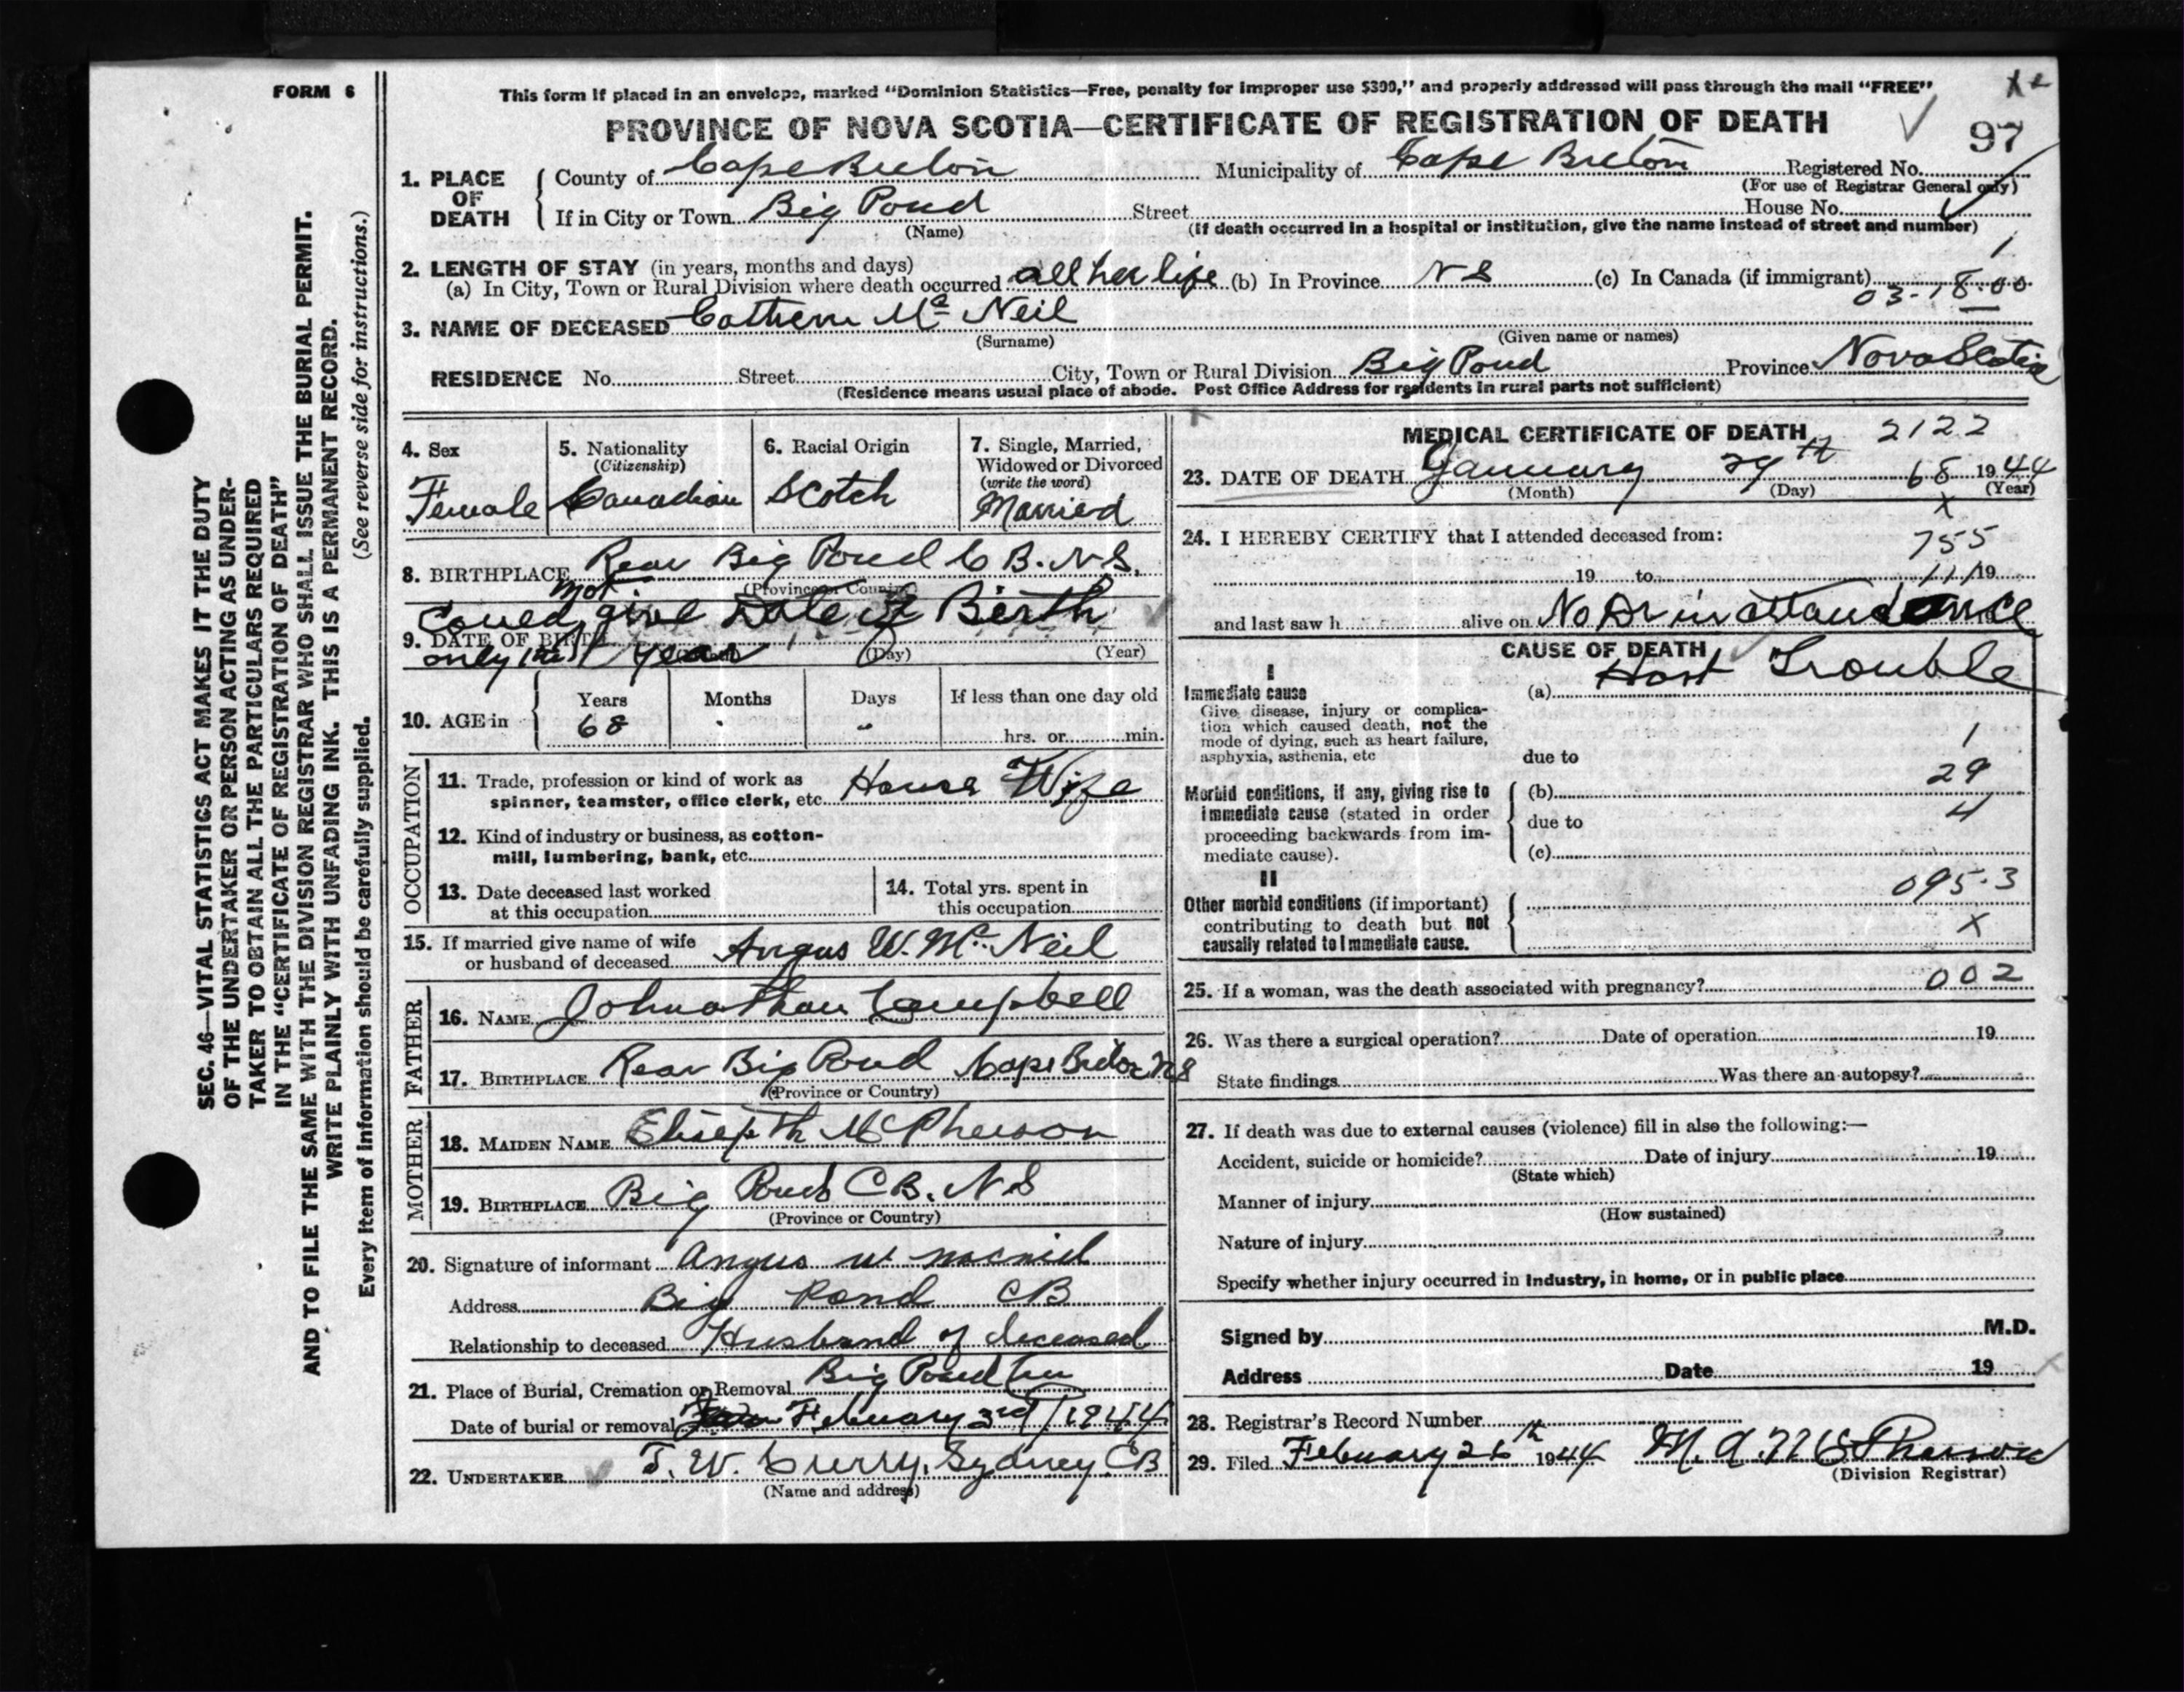 FORM 6
This form if placed in an envelope, marked "Dominion Statistics—Free, penalty for improper use $300," and properly addressed will pass through the mail "FREE"
PROVINCE OF NOVA SCOTIA—CERTIFICATE OF REGISTRATION OF DEATH
97
1. PLACE OF DEATH
County of Cape Breton Municipality of Cape Breton Registered No.
(For use of Registrar General only)
If in City or Town Big Pond Street House No.
(Name) (If death occurred in a hospital or institution, give the name instead of street and number)
1
2. LENGTH OF STAY (in years, months and days)
(a) In City, Town or Rural Division where death occurred all her life (b) In Province N S (c) In Canada (if immigrant)
03-18-00
3. NAME OF DECEASED Cathern Mc Neil
(Surname) (Given name or names)
RESIDENCE No. Street City, Town or Rural Division Big Pond Province Nova Scotia
(Residence means usual place of abode. Post Office Address for residents in rural parts not sufficient)
4. Sex
Female
5. Nationality
(Citizenship)
Canadian
6. Racial Origin
Scotch
7. Single, Married,
Widowed or Divorced
(write the word)
Married
8. BIRTHPLACE Rear Big Pond C B. N. S.
(Province or Country)
not
Could give Date of Birth
9. DATE OF BIRTH
only the year
(Day) (Year)
10. AGE in
Years Months Days If less than one day old
68 " " hrs. or min.
OCCUPATION
11. Trade, profession or kind of work as
spinner, teamster, office clerk, etc. House Wife
12. Kind of industry or business, as cotton-
mill, lumbering, bank, etc.
13. Date deceased last worked
at this occupation
14. Total yrs. spent in
this occupation
15. If married give name of wife
or husband of deceased Angus W. Mc Neil
FATHER
16. NAME Johnathan Campbell
17. BIRTHPLACE Rear Big Pond Cape Breton N S
(Province or Country)
MOTHER
18. MAIDEN NAME Elisepth McPherson
19. BIRTHPLACE Big Pond C B. N S
(Province or Country)
20. Signature of informant Angus W Macniel
Address Big Pond CB
Relationship to deceased Husband of deceased
21. Place of Burial, Cremation or Removal Big Pond
Date of burial or removal February 3rd / 1944
22. UNDERTAKER T. W. Curry, Sydney. CB
(Name and address)
MEDICAL CERTIFICATE OF DEATH 2122
23. DATE OF DEATH January 29th 68 1944
(Month) (Day) (Year)
X
24. I HEREBY CERTIFY that I attended deceased from:
755
19 to 111 19
and last saw h alive on No Dr in attendance 19
CAUSE OF DEATH
I
Immediate cause
Give disease, injury or complica-
tion which caused death, not the
mode of dying, such as heart failure,
asphyxia, asthenia, etc
(a) Hart Trouble
1
due to
29
Morbid conditions, if any, giving rise to
immediate cause (stated in order
proceeding backwards from im-
mediate cause).
(b)
4
due to
(c)
II
Other morbid conditions (if important)
contributing to death but not
causally related to immediate cause.
095-3
X
25. If a woman, was the death associated with pregnancy? 002
26. Was there a surgical operation? Date of operation 19
State findings Was there an autopsy?
27. If death was due to external causes (violence) fill in also the following:—
Accident, suicide or homicide? Date of injury 19
(State which)
Manner of injury
(How sustained)
Nature of injury
Specify whether injury occurred in industry, in home, or in public place
Signed by M.D.
Address Date 19
28. Registrar's Record Number
29. Filed February 26th 1944 M. A. McPherson
(Division Registrar)
SEC. 46—VITAL STATISTICS ACT MAKES IT THE DUTY
OF THE UNDERTAKER OR PERSON ACTING AS UNDER-
TAKER TO OBTAIN ALL THE PARTICULARS REQUIRED
IN THE "CERTIFICATE OF REGISTRATION OF DEATH"
AND TO FILE THE SAME WITH THE DIVISION REGISTRAR WHO SHALL ISSUE THE BURIAL PERMIT.
WRITE PLAINLY WITH UNFADING INK. THIS IS A PERMANENT RECORD.
Every item of information should be carefully supplied. (See reverse side for instructions.)